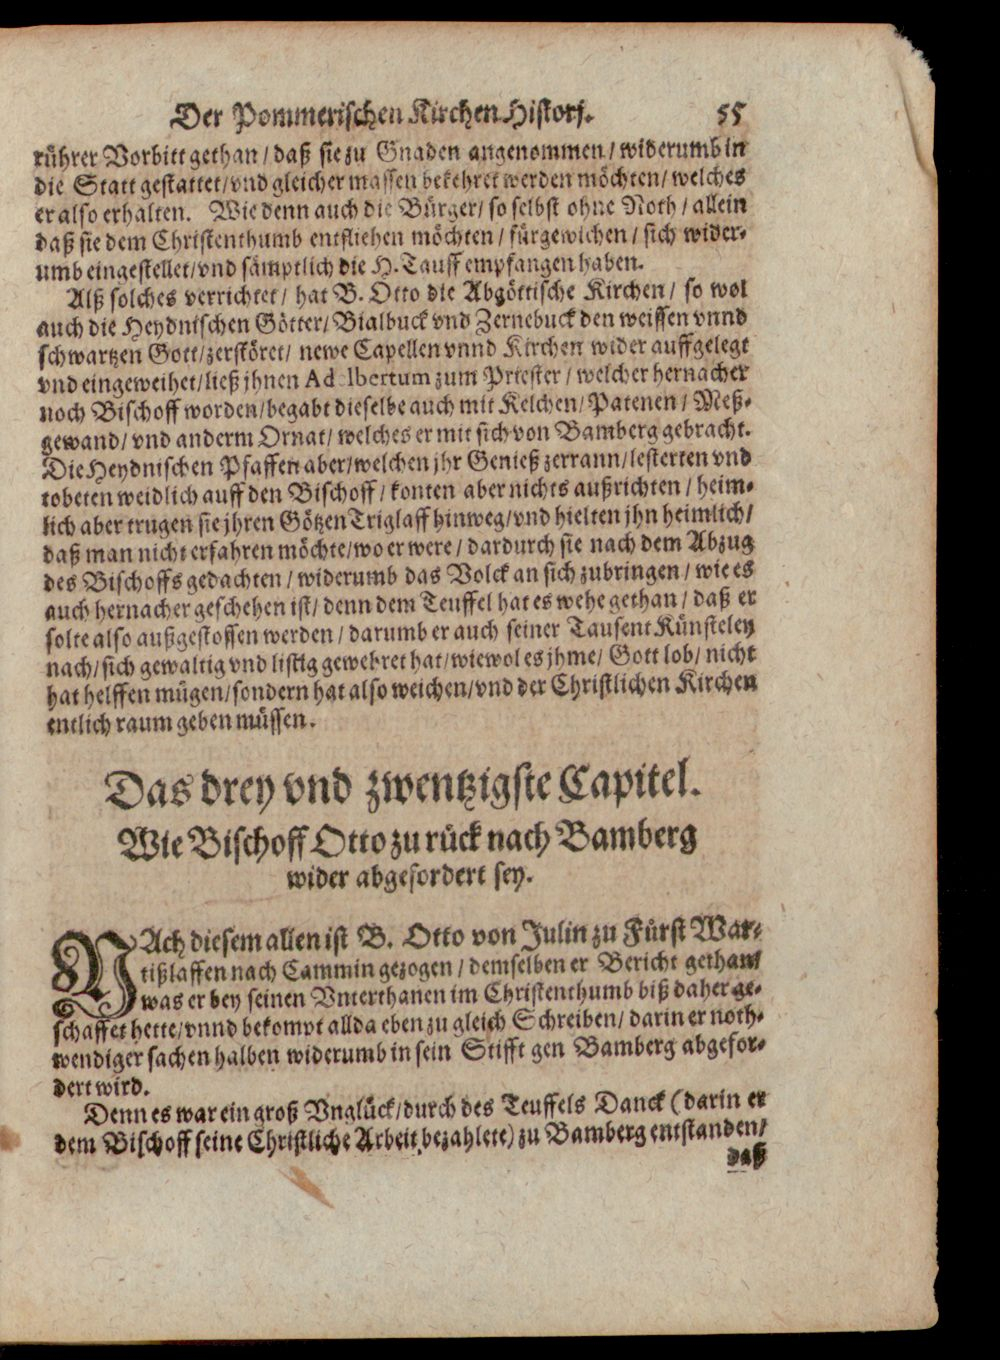 Der Pommerischen Kirchen Historj. 55
rührer Vorbitt gethan / daß sie zu Gnaden angenommen / widerumb in
die Statt gestattet / vnd gleicher massen bekehret werden möchten / welches
er also erhalten. Wie denn auch die Bürger / so selbst ohne Noth / allein
daß sie dem Christenthumb entfliehen möchten / fürgewichen / sich wider-
umb eingestellet / vnd sämptlich die H. Tauff empfangen haben.
Alß solches verrichtet / hat B. Otto die Abgöttische Kirchen / so wol
auch die Heydnischen Götter / Bialbuck vnd Zernebuck den weissen vnnd
schwartzen Gott / zerstöret / newe Capellen vnnd Kirchen wider auffgelegt
vnd eingeweihet / ließ jhnen Adelbertum zum Priester / welcher hernacher
noch Bischoff worden / begabt dieselbe auch mit Kelchen / Patenen / Meß-
gewand / vnd anderm Ornat / welches er mit sich von Bamberg gebracht.
Die Heydnischen Pfaffen aber / welchen jhr Genieß zerrann / lesterten vnd
tobeten weidlich auff den Bischoff / konten aber nichts außrichten / heim-
lich aber trugen sie jhren Götzen Triglaff hinweg / vnd hielten jhn heimlich /
daß man nicht erfahren möchte / wo er were / dardurch sie nach dem Abzug
des Bischoffs gedachten / widerumb das Volck an sich zubringen / wie es
auch hernacher geschehen ist / denn dem Teuffel hat es wehe gethan / daß er
solte also außgestossen werden / darumb er auch seiner Tausent Künsteley
nach / sich gewaltig vnd listig gewehret hat / wiewol es jhme / Gott lob / nicht
hat helffen mügen / sondern hat also weichen / vnd der Christlichen Kirchen
entlich raum geben müssen.
Das drey vnd zwentzigste Capitel.
Wie Bischoff Otto zu rück nach Bamberg
wider abgefordert sey.
NAch diesem allen ist B. Otto von Julin zu Fürst War-
tißlaffen nach Cammin gezogen / demselben er Bericht gethan /
was er bey seinen Vnterthanen im Christenthumb biß daher ge-
schaffet hette / vnnd bekompt allda eben zu gleich Schreiben / darin er noth-
wendiger sachen halben widerumb in sein Stifft gen Bamberg abgefor-
dert wird.
Denn es war ein groß Vnglück / durch des Teuffels Danck (darin er
dem Bischoff seine Christliche Arbeit bezahlete) zu Bamberg entstanden /
daß